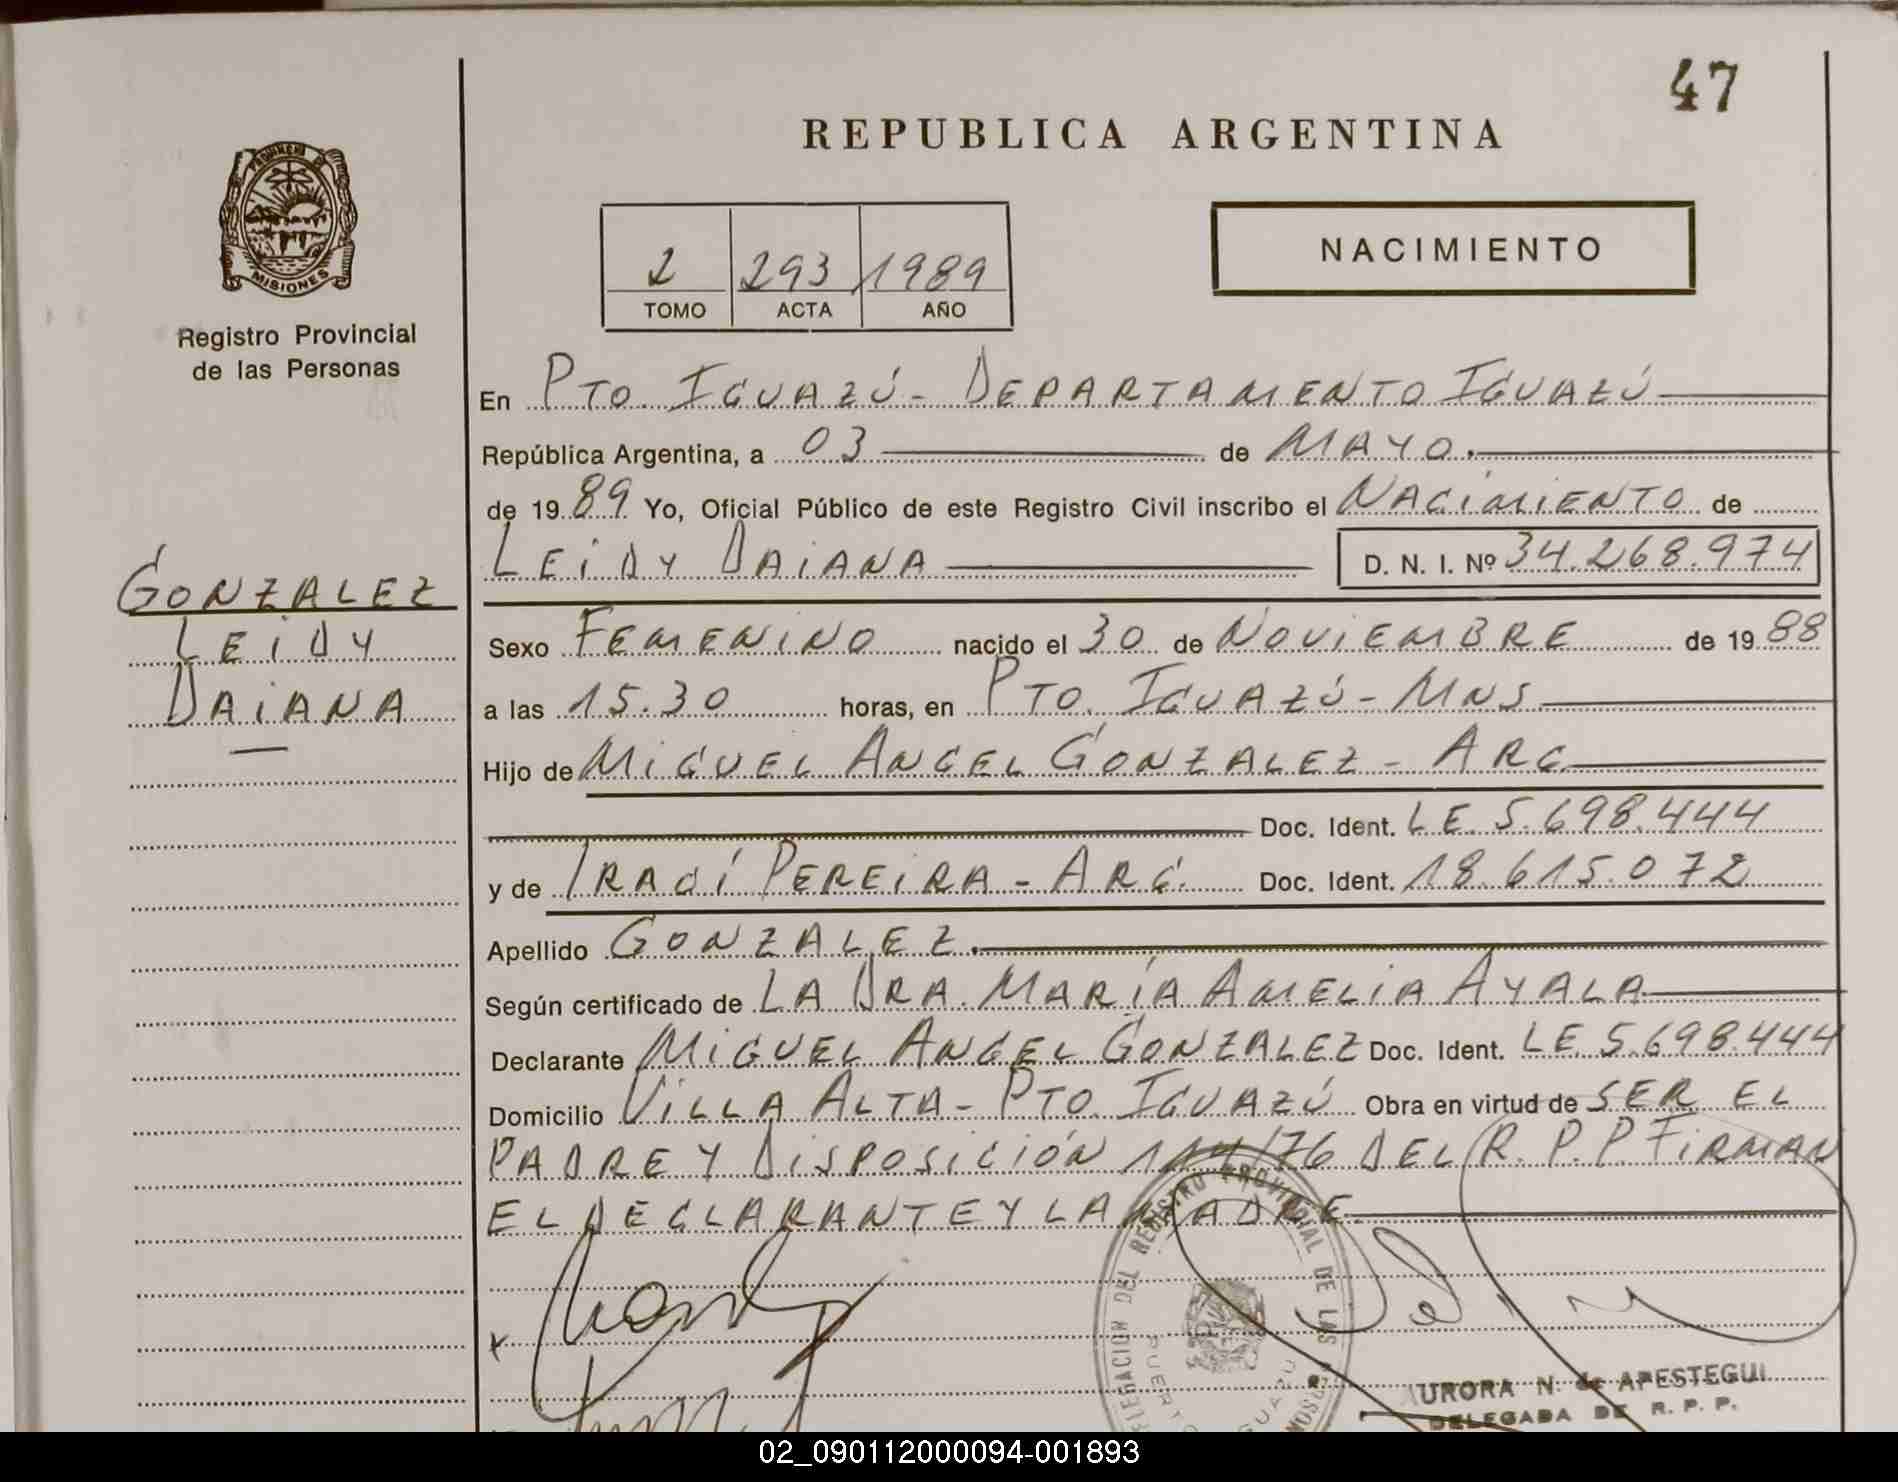 47
REPUBLICA ARGENTINA
PROVINCIA DE
MISIONES
Registro Provincial
de las Personas
2 293 1989
TOMO ACTA AÑO
NACIMIENTO
En PTO. IGUAZÚ - DEPARTAMENTO IGUAZÚ
República Argentina, a 03 de MAYO.
de 1989 Yo, Oficial Público de este Registro Civil inscribo el NACIMIENTO de
LEIDY DAIANA D. N. I. Nº 34.268.974
GONZALEZ
LEIDY
DAIANA
Sexo FEMENINO nacido el 30 de NOVIEMBRE de 1988
a las 15.30 horas, en PTO. IGUAZÚ - MNS
Hijo de MIGUEL ANGEL GONZALEZ - ARG
Doc. Ident. LE. 5.698.444
y de IRACÍ PEREIRA - ARG. Doc. Ident. 18.615.072
Apellido GONZALEZ.
Según certificado de LA DRA. MARÍA AMELIA AYALA
Declarante MIGUEL ANGEL GONZALEZ Doc. Ident. LE. 5.698.444
Domicilio VILLA ALTA - PTO. IGUAZÚ Obra en virtud de SER EL
PADRE Y DISPOSICIÓN 114/76 DEL R.P.P. FIRMAN
EL DECLARANTE Y LA MADRE
DELEGACION DEL REGISTRO PROVINCIAL DE LAS
PUERTO IGUAZU
AURORA N. de APESTEGUI
DELEGADA DE R. P. P.
02_090112000094-001893